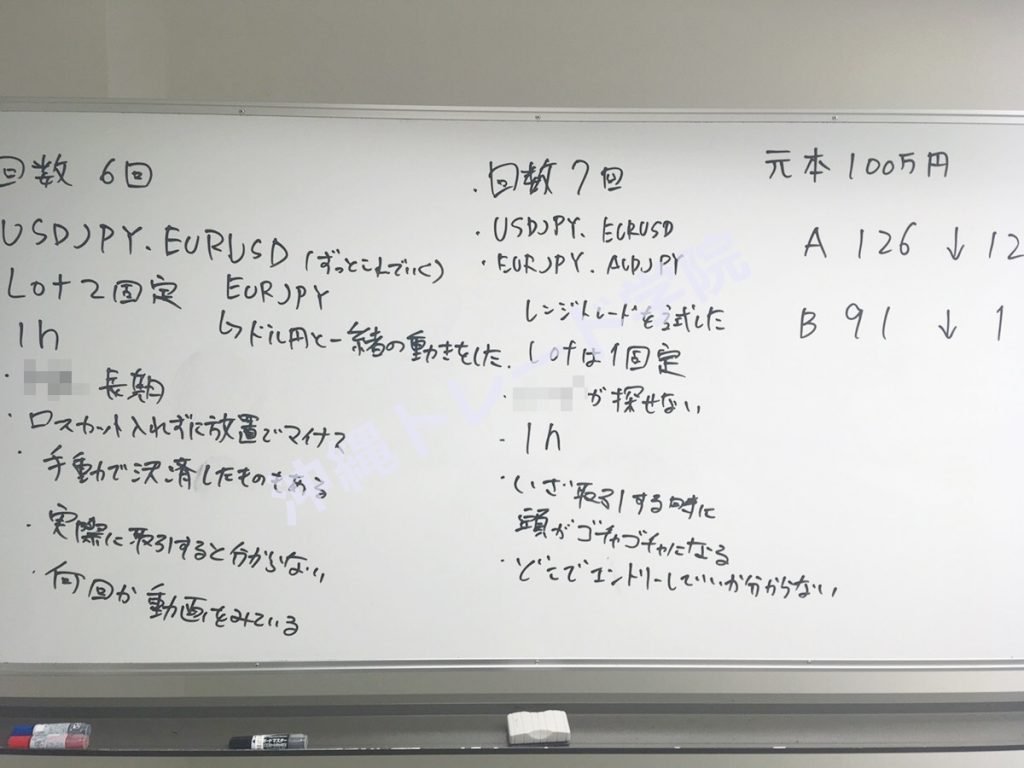 回数 6回
USDJPY. EURUSD (ずっとこれでいく)
Lot 2 固定 EURJPY
↳ドル円と一緒の動きをした
1h
・ 長期
ロスカット入れずに放置でマイナス
・手動で決済したものもある
・実際に取引すると分からない
・何回か動画をみている
・回数 7回
・USDJPY. EURUSD
・EURJPY. AUDJPY
レンジトレードを試した
・Lotは1固定
・ が探せない
- 1h
・いざ取引する時に
頭がゴチャゴチャになる
・どこでエントリーしていいか分からない
元本 100万円
A 126 ↓ 12
B 91 ↓ 1
沖縄トレード学院